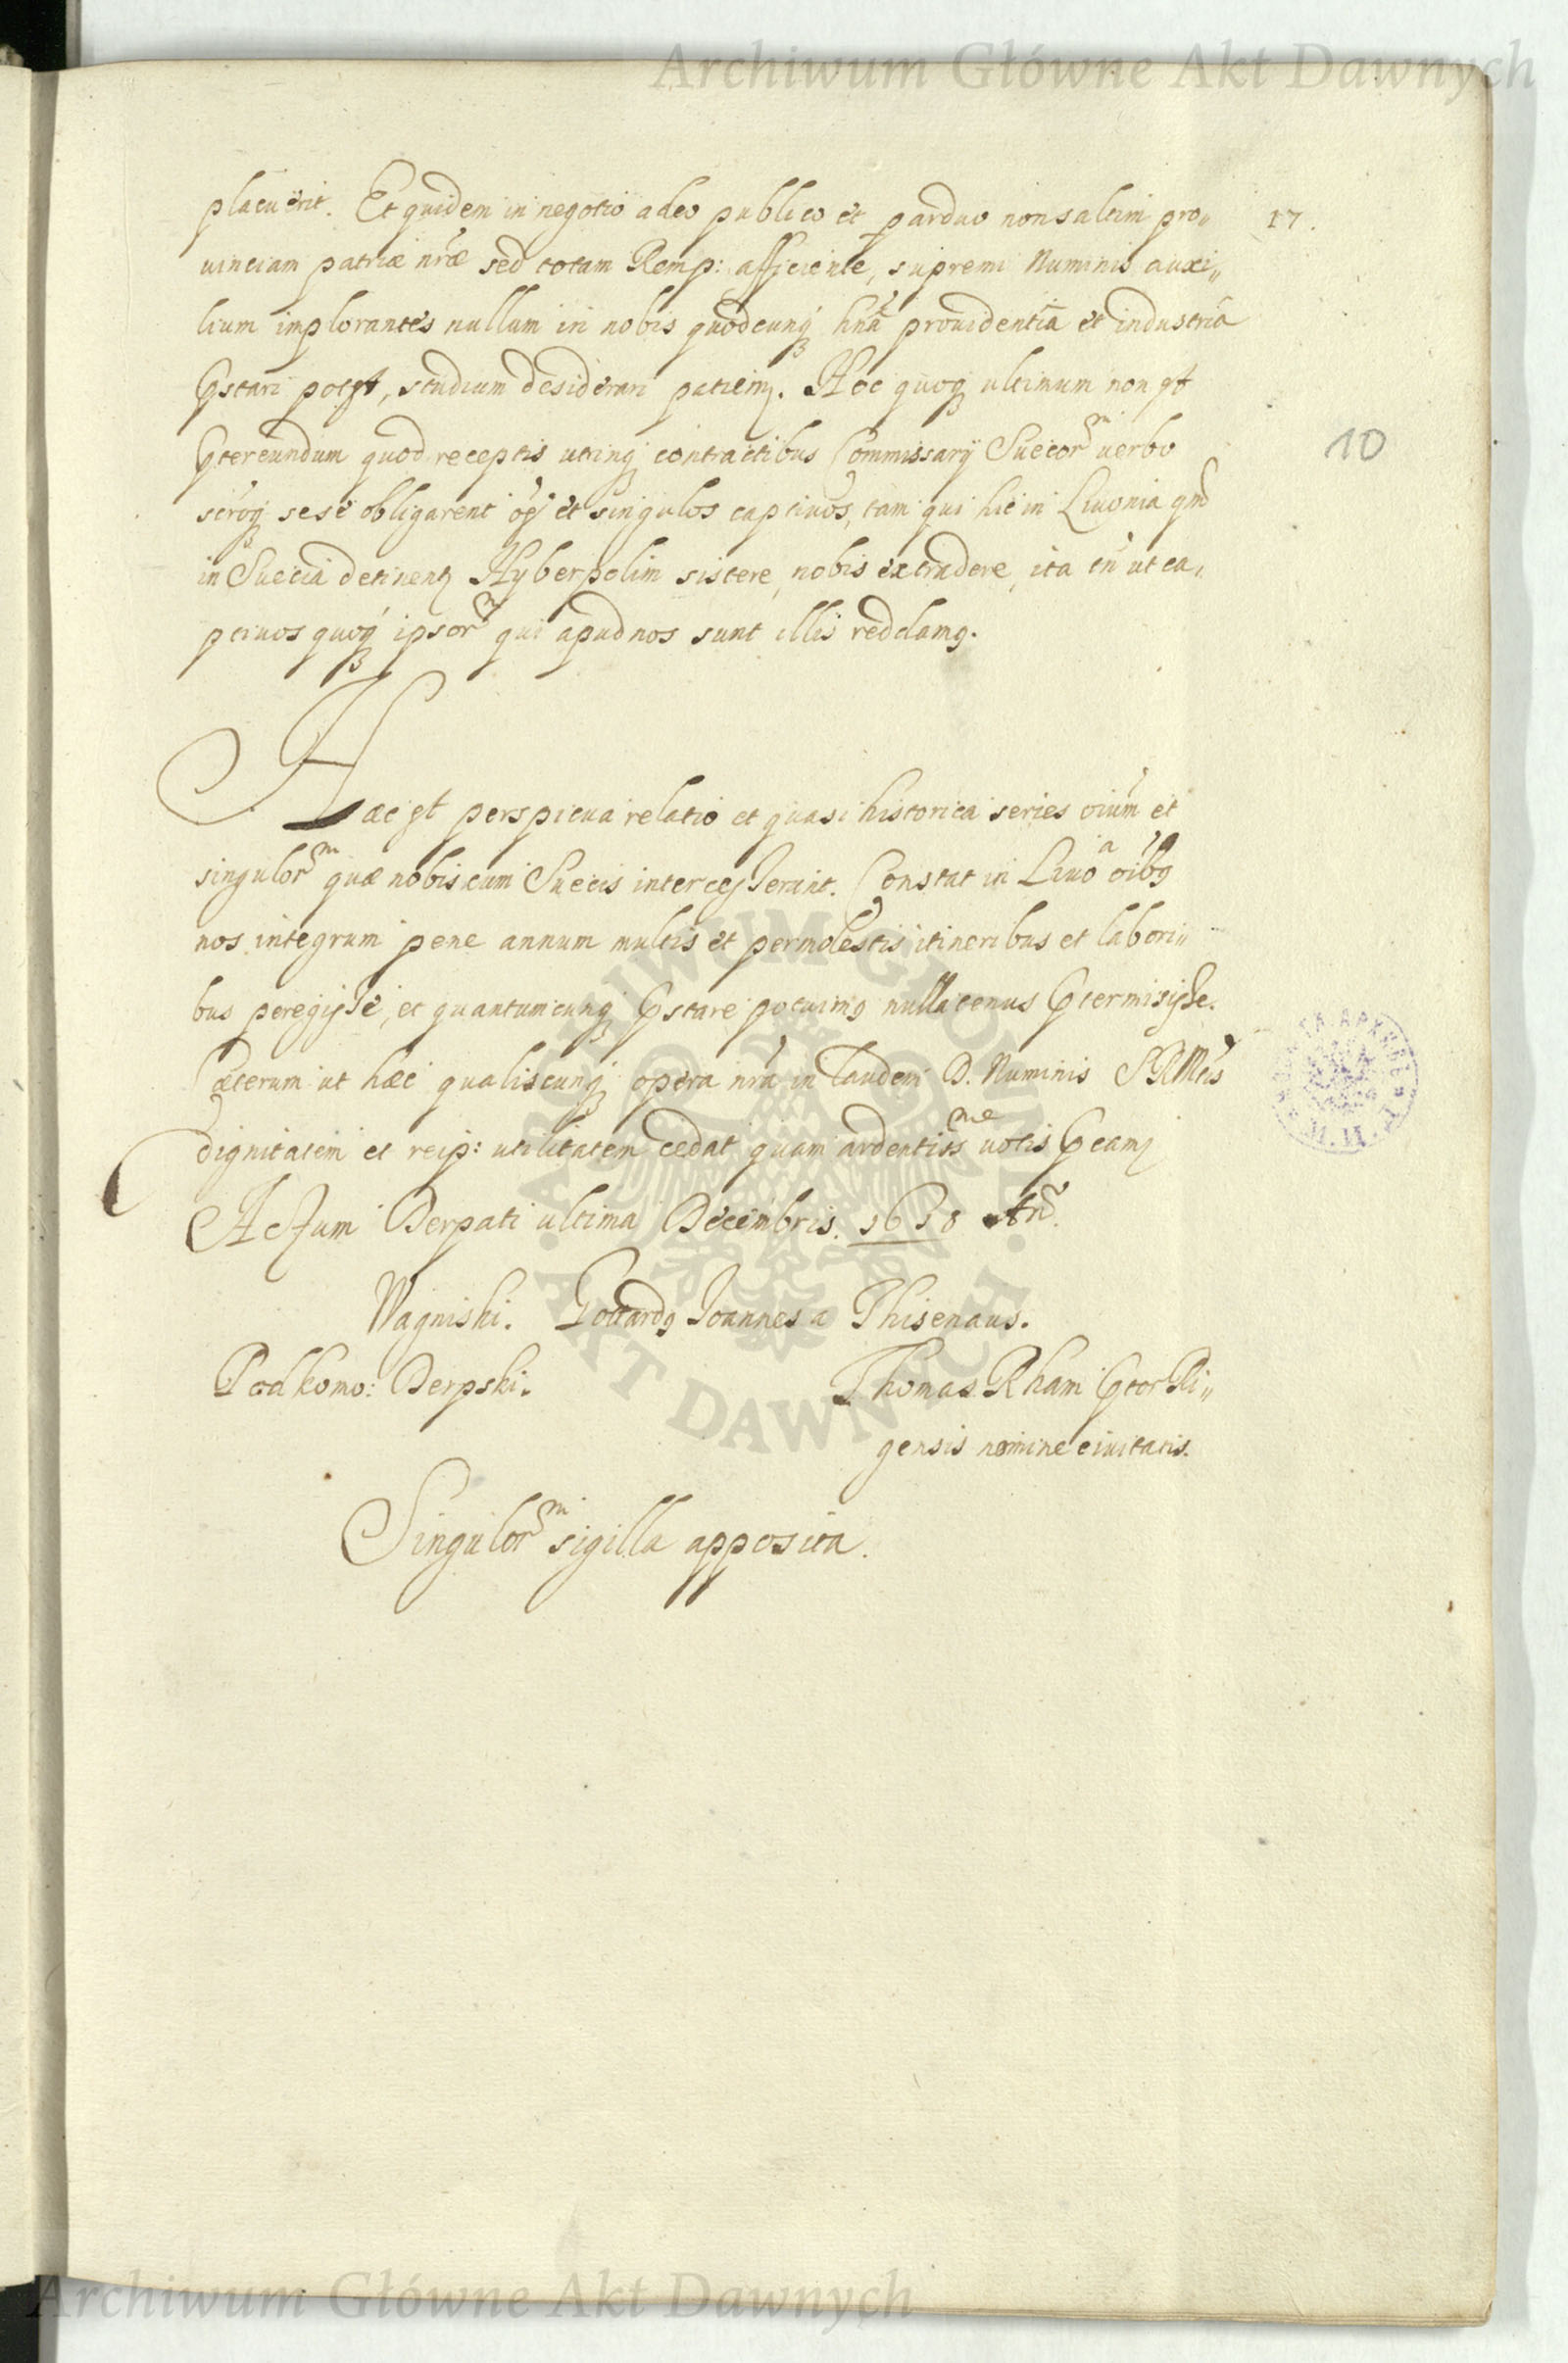 Archiwum Główne Akt Dawnych
placuerit. Et quidem in negotio adeo publico et parduo non saltim pro„ 17.
uinciam patriæ nr̃æ sed totam Remp: afficiente, supremi Numinis auxi„
lium implorantes nullum in nobis quodcunq̃ hnã prouidentia et industria
p̃stari potest, studium desiderari patiem̃. Hoc quoq̃ ultimum non est
p̃tereundum quod receptis utrinq̃ contractibus Commissarij Suecorᵐ uerbo 10
sese obligarent et singulos captiuos, tam qui hic in Liuonia qm̃
in Suecia detinent̃ Hyberpolim sistere, nobis extradere, ita tñ ut ca„
ptiuos quoq̃ ipsorᵐ qui apud nos sunt illis reddamꝰ.
Hæc est perspicua relatio et quasi historica series oium̃ et
singulorᵐ quæ nobis cum Suecis intercesserunt. Constat in Liuoᵃ oibꝰ
nos integrum pene annum multis et permolestis itineribus et labori„
bus peregisse, et quantumcunq̃ p̃stare potuimꝰ nullatenus p̃termisisse.
Cæterum ut hæc qualiscunq̃ opera nr̃a in laudem D. Numinis SRMtis
dignitatem et reip: utilitatem cedat quam ardentissᵐᵉ uotis p̃cam̃
Actum Derpati ultima Decembris. 1618 Añ.
Wagniski. Gottardꝰ Joannes a Thisenaus.
Podkomo: Derpski. Thomas Rham p̃tor Ri„
gensis nomine ciuitatis.
Singulorᵐ sigilla apposita.
ARCHIWUM GŁÓWNE AKT DAWNYCH
Archiwum Główne Akt Dawnych